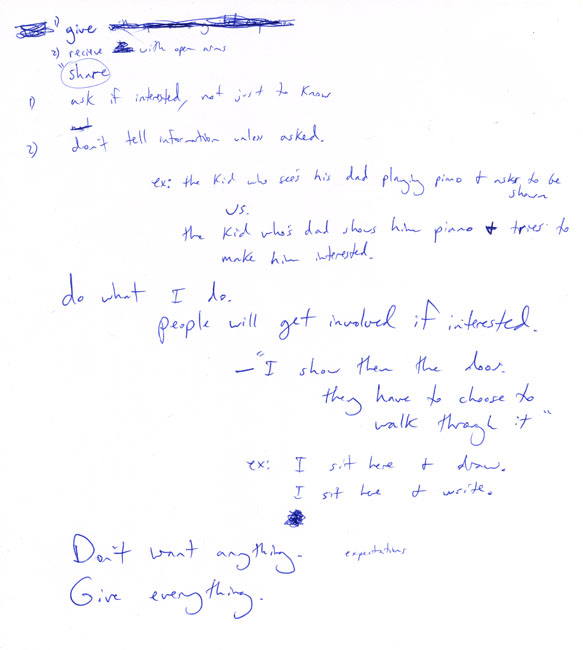 1) give
2) recieve with open arms
"share
1) ask if interested, not just to know
2) don't tell information unless asked.
ex: the kid who see's his dad playing piano & asks to be
shown
vs.
the kid who's dad shows him piano & tries to
make him interested.
do what I do.
people will get involved if interested.
— "I show them the door.
they have to choose to
walk through it"
ex: I sit here & draw.
I sit here & write.
Don't want anything. expectations
Give everything.